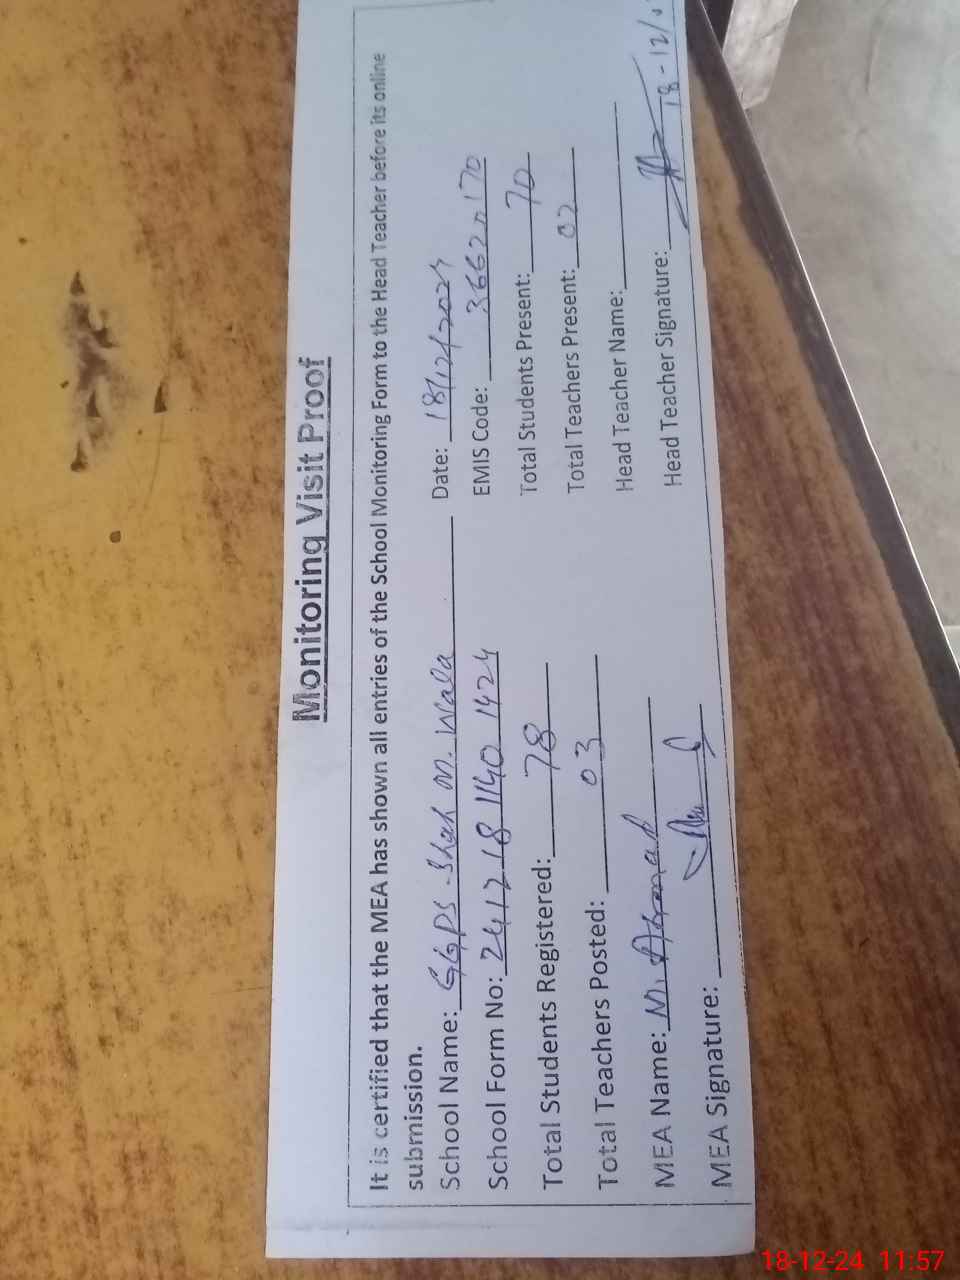 Monitoring Visit Proof
It is certified that the MEA has shown all entries of the School Monitoring Form to the Head Teacher before its online
submission.
School Name: GGPS-Shah M. Wala Date: 18/12/2024
School Form No: 241218 1140 1424 EMIS Code: 36620170
Total Students Registered: 78 Total Students Present: 70
Total Teachers Posted: 03 Total Teachers Present: 02
MEA Name: M. Ahmad Head Teacher Name:
MEA Signature: Head Teacher Signature: 18-12/
18-12-24 11:57